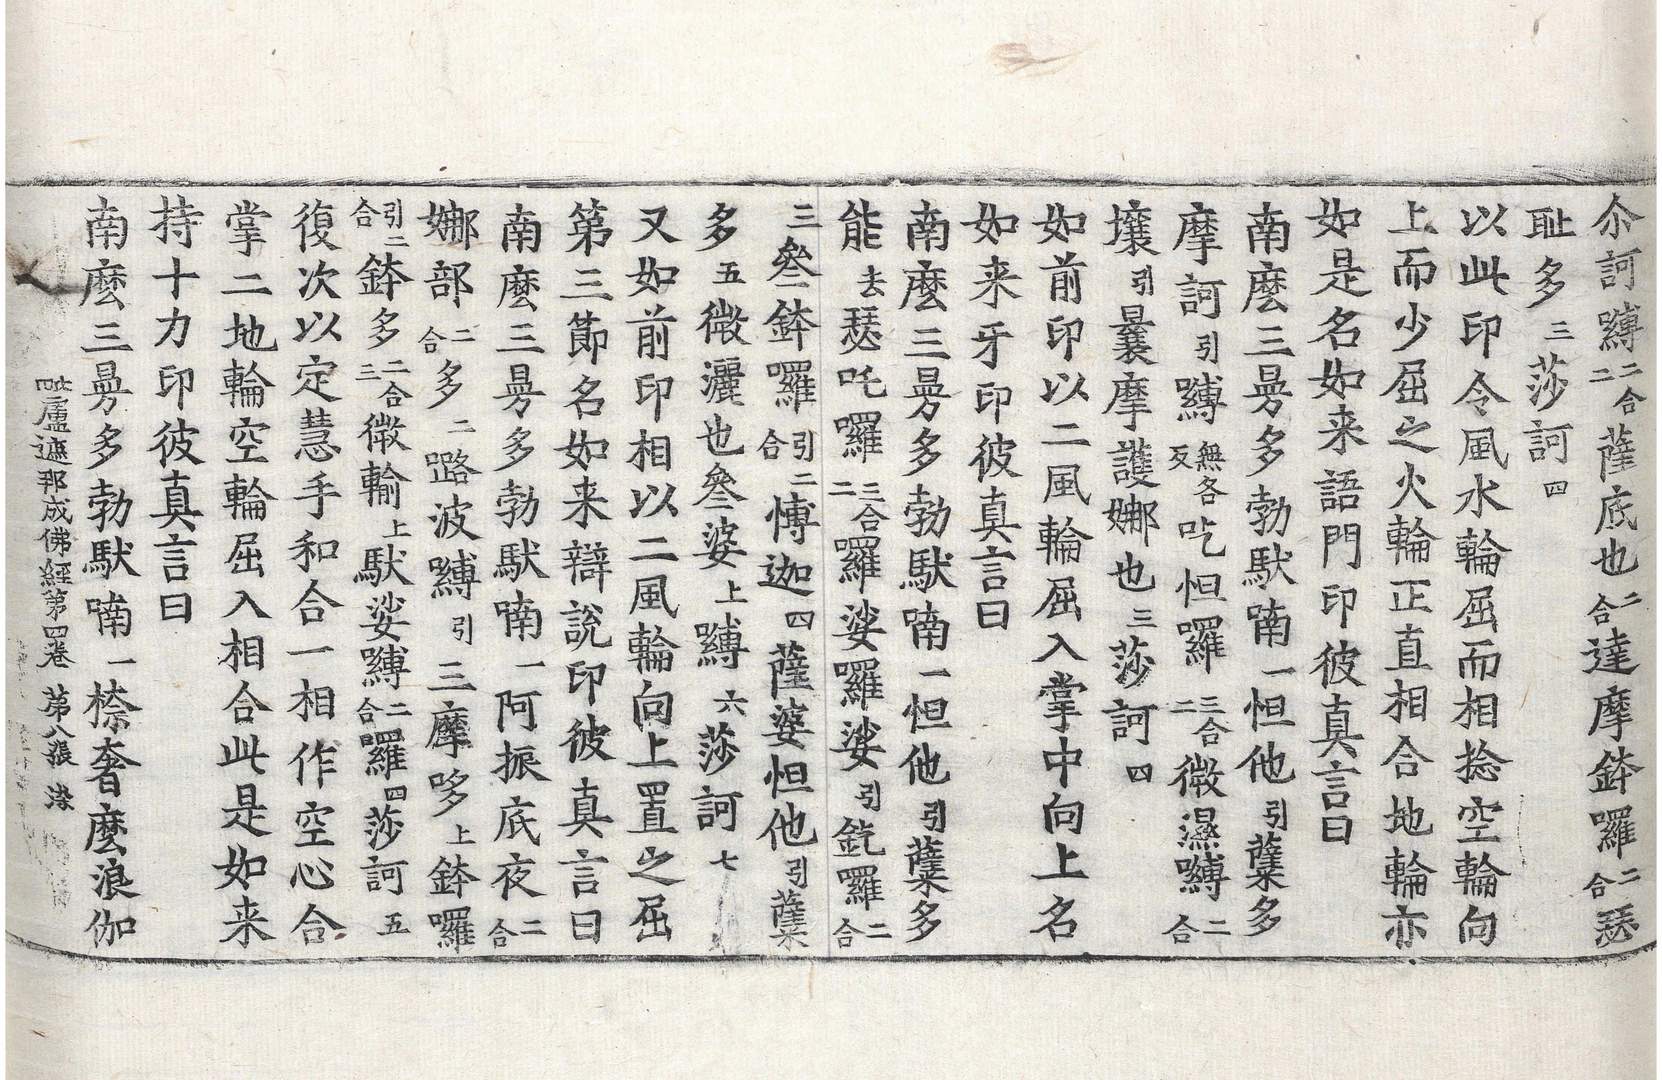 尒訶嚩二合二薩底也二合達摩鉢囉二合瑟
耻多三莎訶四
以此印令風水輪屈而相捻空輪向
上而少屈之火輪正直相合地輪亦
如是名如来語門印彼真言曰
南麽三曼多勃馱喃一怛他引蘖多
摩訶引嚩無各反吃怛囉三合二微濕嚩二合
壤引曩摩護娜也三莎訶四
如前印以二風輪屈入掌中向上名
如来牙印彼真言曰
南麽三曼多勃馱喃一怛他引蘖多
能去瑟吒囉三合二囉娑囉娑引釳囉二合
三參鉢囉引二合愽迦四薩婆怛他引蘖
多五微灑也參婆上嚩六莎訶七
又如前印相以二風輪向上置之屈
第三節名如来辯說印彼真言曰
南麽三曼多勃馱喃一阿振底夜二合
娜部二合多二路波嚩引三摩哆上鉢囉
引二合鉢多二合三微輸上馱娑嚩二合囉四莎訶五
復次以定慧手和合一相作空心合
掌二地輪空輪屈入相合此是如来
持十力印彼真言曰
南麽三曼多勃馱喃一捺奢麽浪伽
毗盧遮那成佛經第四卷 第八張 染